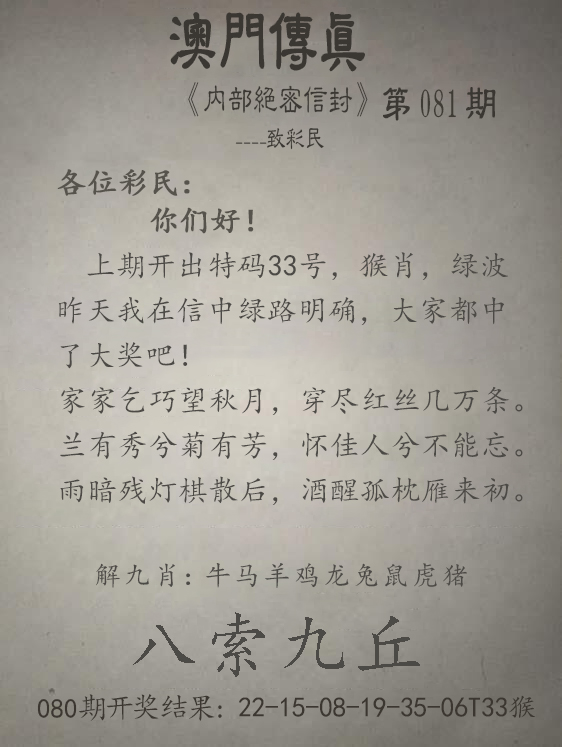 澳門傳真
《内部絕密信封》第081期
----致彩民
各位彩民：
你们好！
上期开出特码33号，猴肖，绿波
昨天我在信中绿路明确，大家都中
了大奖吧！
家家乞巧望秋月，穿尽红丝几万条。
兰有秀兮菊有芳，怀佳人兮不能忘。
雨暗残灯棋散后，酒醒孤枕雁来初。
解九肖：牛马羊鸡龙兔鼠虎猪
八索九丘
080期开奖结果：22-15-08-19-35-06T33猴